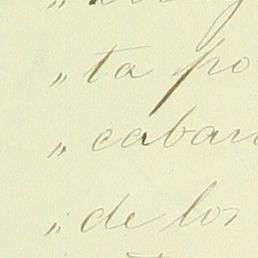 „ ta po
„ caban
„ de los